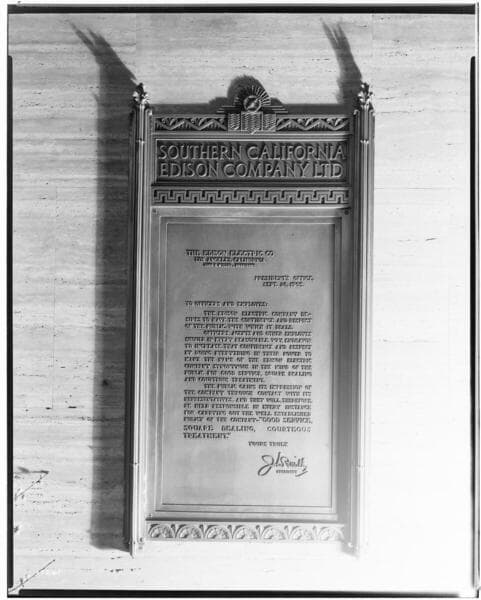 SOUTHERN CALIFORNIA
EDISON COMPANY LTD
THE EDISON ELECTRIC CO
LOS ANGELES, CALIFORNIA
PRESIDENT'S OFFICE.
SEPT.
TO OFFICERS AND EMPLOYEES:
THE EDISON ELECTRIC COMPANY DE-
SIRES TO HAVE THE CONFIDENCE AND RESPECT
OF THE PUBLIC WITH WHICH IT DEALS.
OFFICERS, AGENTS AND OTHER EMPLOYEES
SHOULD IN EVERY REASONABLE WAY, ENDEAVOR
TO INCREASE THAT CONFIDENCE AND RESPECT
BY DOING EVERYTHING IN THEIR POWER TO
MAKE THE NAME OF THE EDISON ELECTRIC
COMPANY SYNONYMOUS IN THE MIND OF THE
PUBLIC FOR GOOD SERVICE, SQUARE DEALING
AND COURTEOUS TREATMENT.
THE PUBLIC GAINS ITS IMPRESSION OF
THE COMPANY THROUGH CONTACT WITH ITS
REPRESENTATIVES, AND THEY WILL, THEREFORE,
BE HELD RESPONSIBLE IN EVERY INSTANCE
FOR CARRYING OUT THE WELL ESTABLISHED
POLICY OF THE COMPANY—"GOOD SERVICE,
SQUARE DEALING, COURTEOUS
TREATMENT."
YOURS TRULY
PRESIDENT